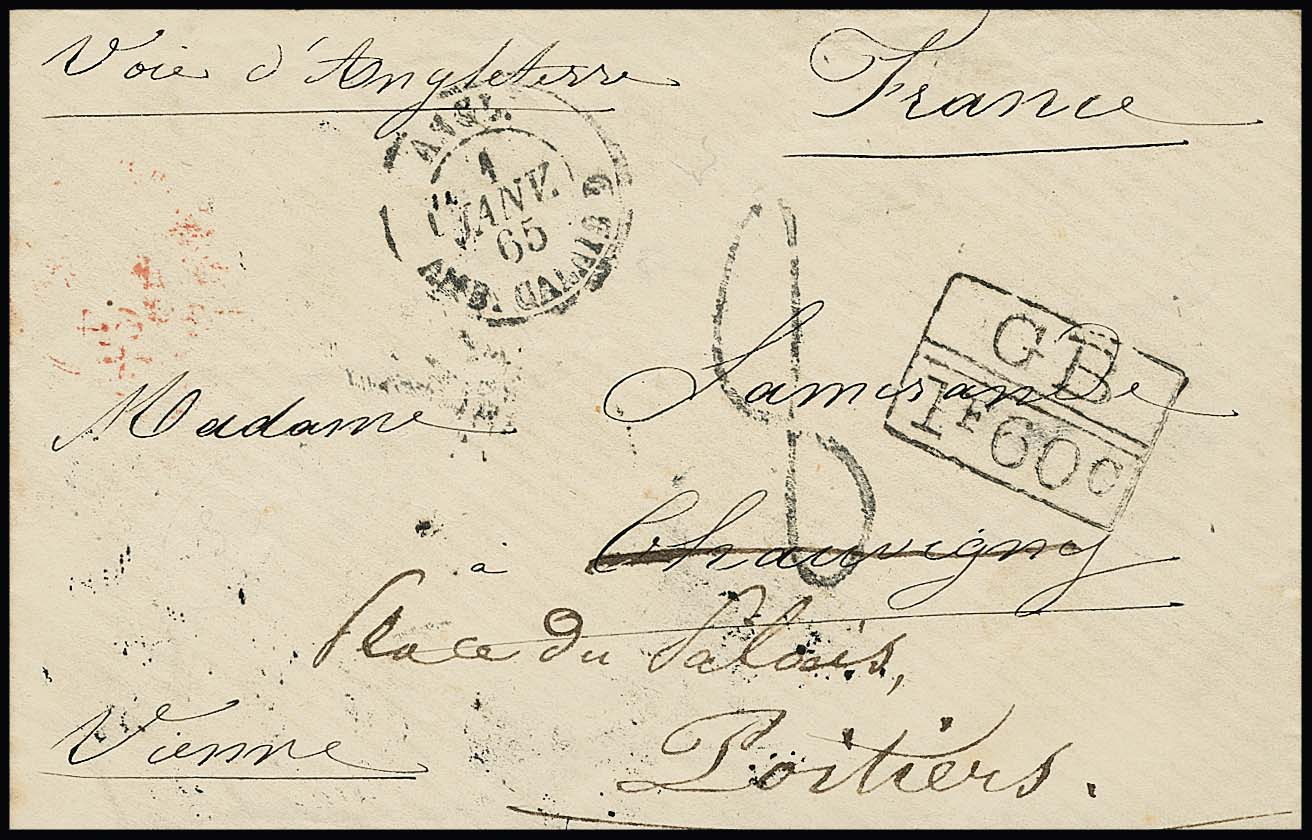 Voie d'Angleterre
France
ANGL.
1
JANV.
65
AMB. CALAIS G
8
GB
1F60c
Madame
à Chauvigny
Place du Palais,
Vienne
Poitiers.